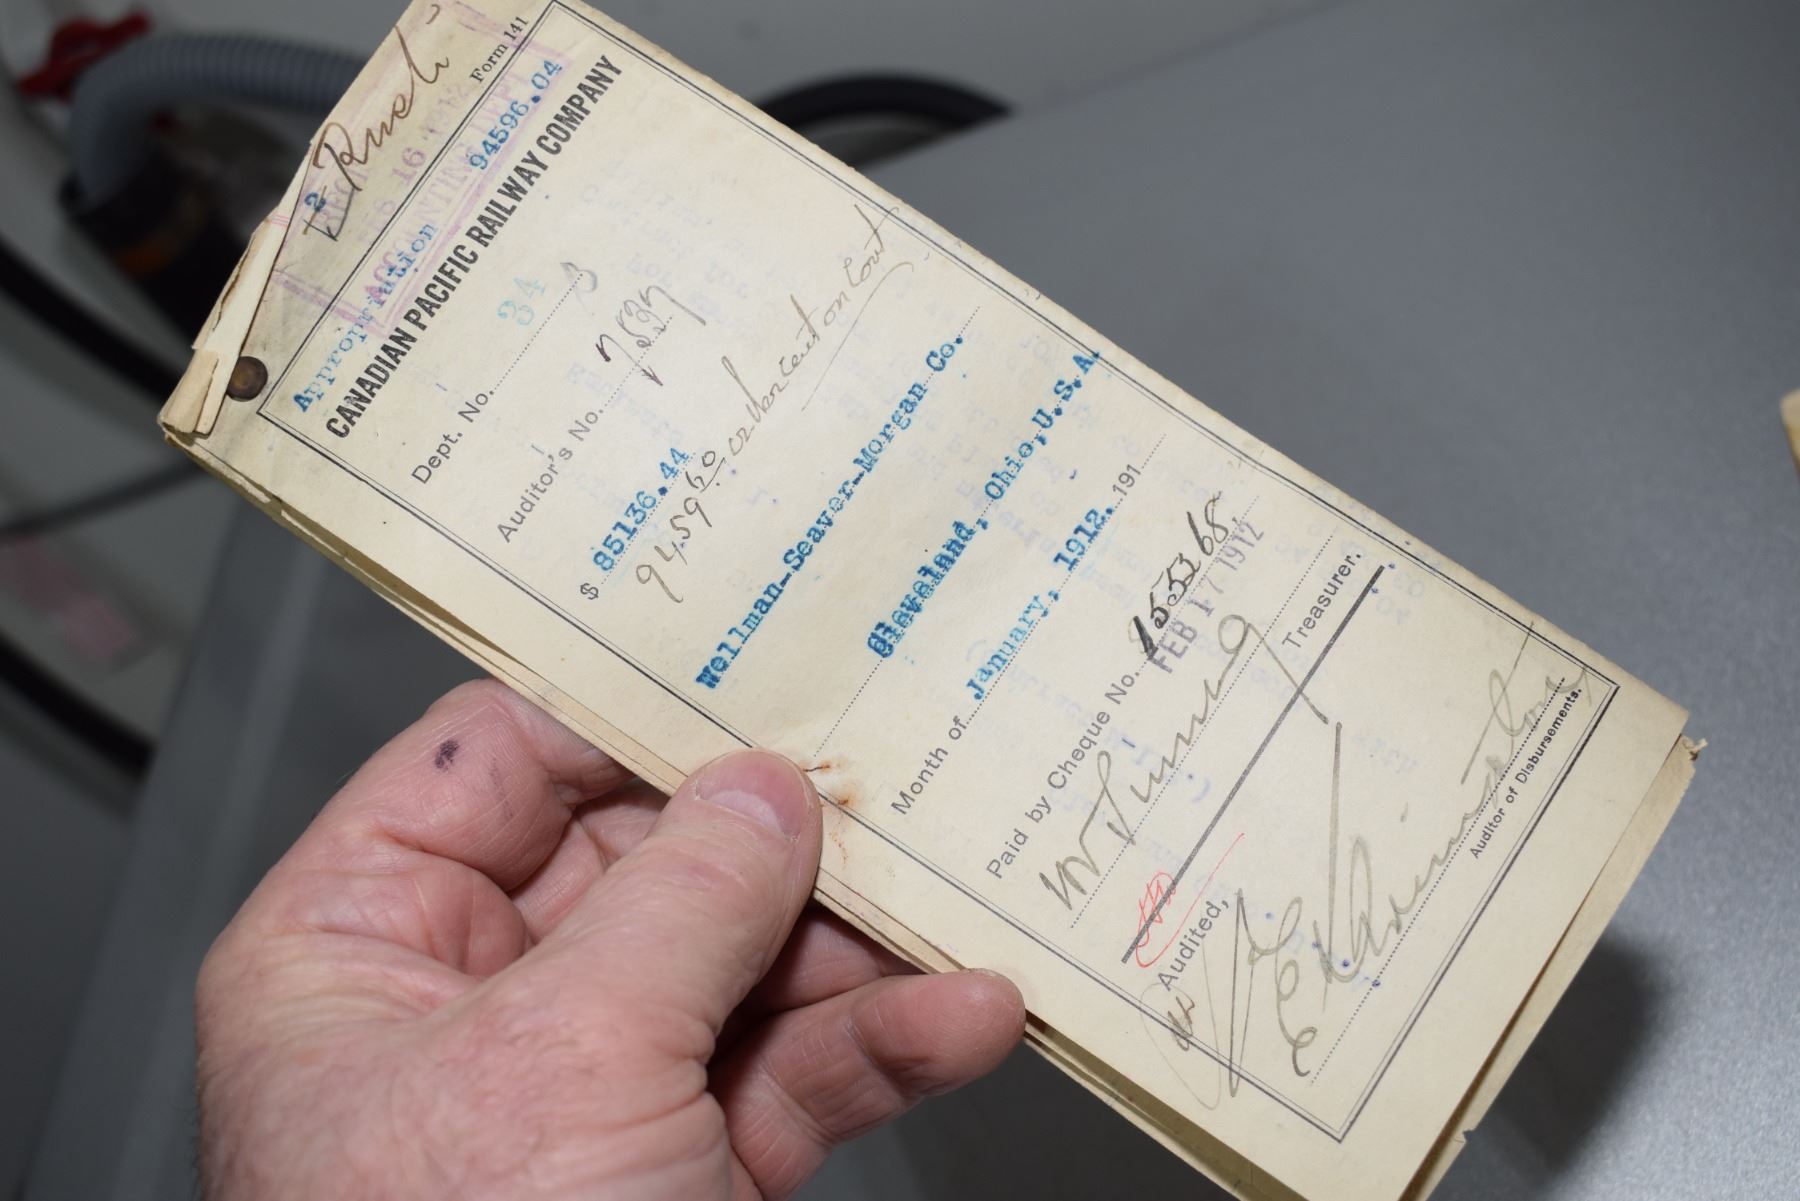 Form 141
2 Rush
REC'D
FEB 16 1912
ACCOUNTING DEPT
Appropriation 94596.04
CANADIAN PACIFIC RAILWAY COMPANY
Dept. No. 34
Auditor's No. 7539
$ 85136.44
Wellman-Seaver-Morgan Co.
Cleveland, Ohio, U.S.A.
Month of January, 1912. 191
Paid by Cheque No. 155368
FEB 17 1912
Treasurer.
Audited,
Auditor of Disbursements.